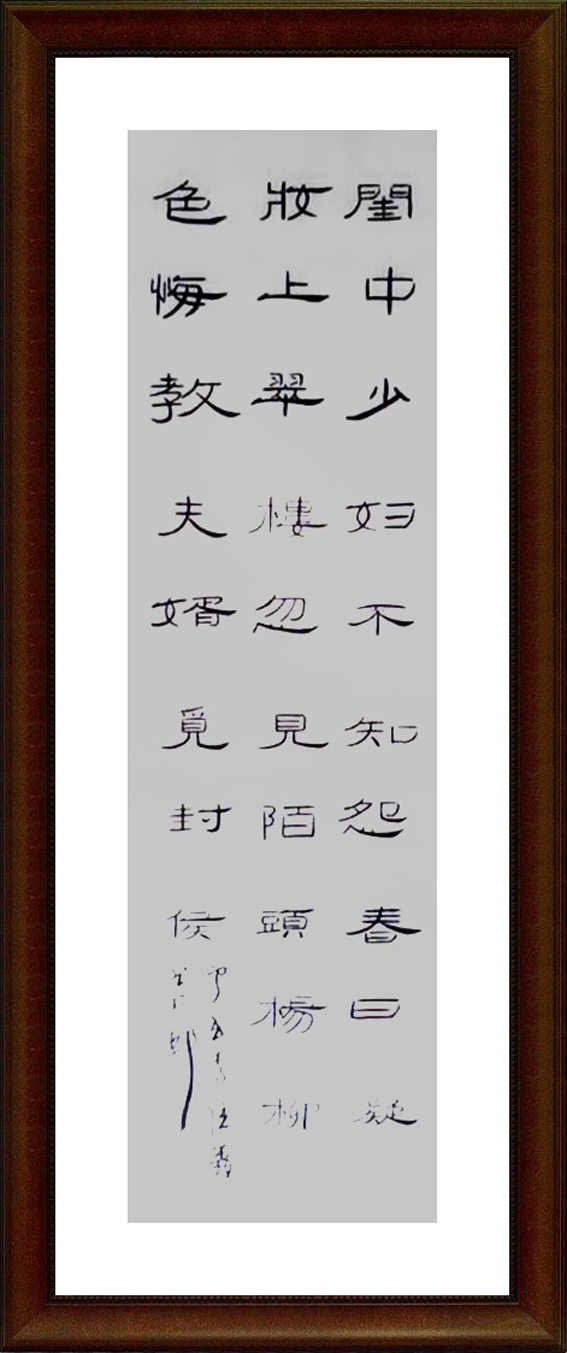 閨中少妇不知怨春日疑
妝上翠樓忽見陌頭楊柳
色悔教夫婿覓封侯